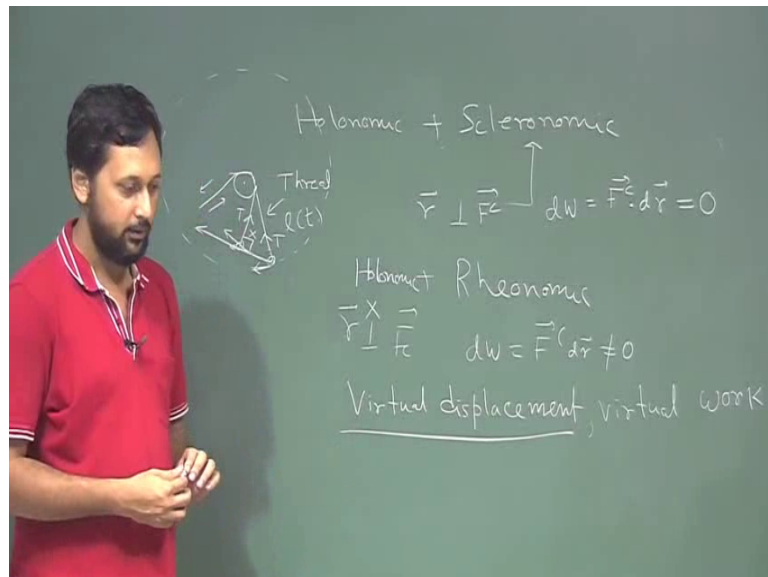 Holonomic + Scleronomic
Thread
l(t)
T
T
r⃗ ⊥ F⃗c dW = F⃗c · dr⃗ = 0
Holonomic + Rheonomic
x
r⃗ ⊥ F⃗c dW = F⃗c dr⃗ ≠ 0
Virtual displacement, virtual work